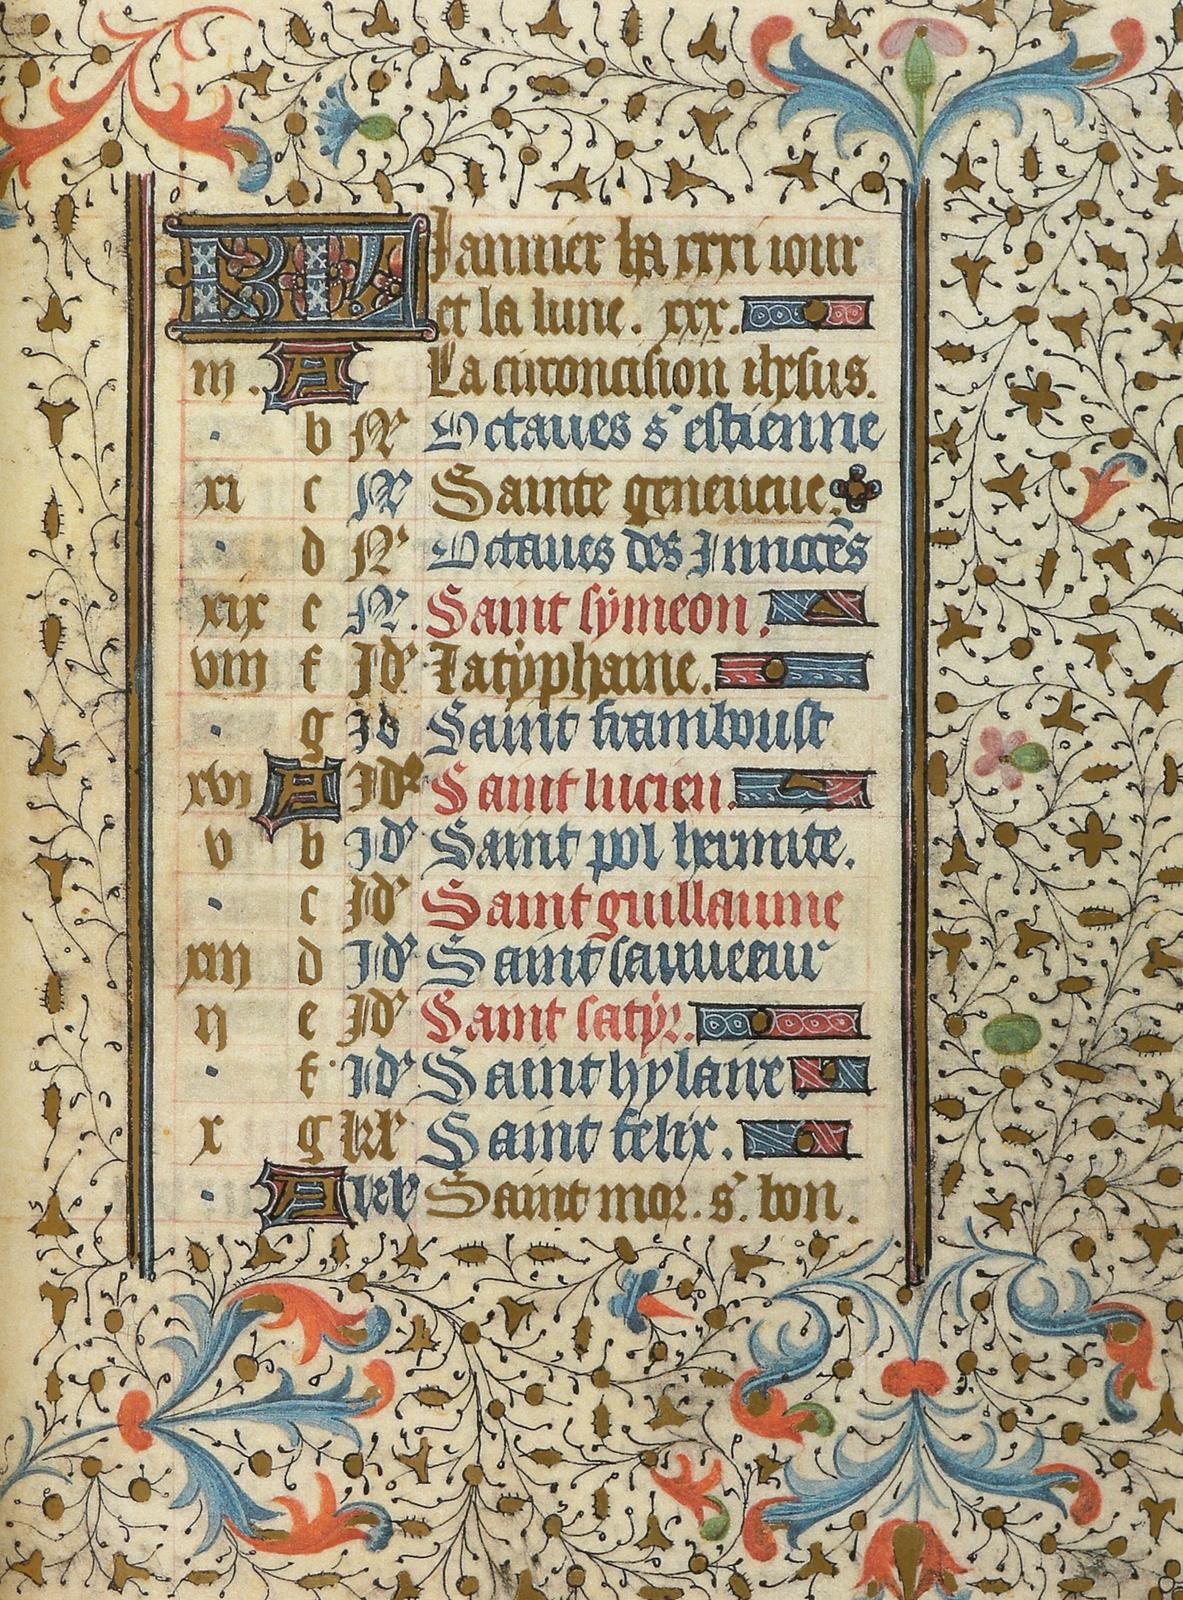 KL Januier ha xxxi iour
et la lune. xxx.
iii. A La circoncision ihesus.
b N Octaues s' estienne
xi c N Sainte geneueue.
d N Octaues des Innocẽs
xix e N. Saint symeon.
viii f Id' La typhaine.
g Id Saint framboust
xvi A Id' Saint lucien.
v b Id' Saint pol hermite.
c Id' Saint guillaume
xiii d Id' Saint sauueeur
ii e Id' Saint satyr.
f Id' Saint hylaire
x g kl' Saint felix.
A kl' Saint mor. s'. bon.